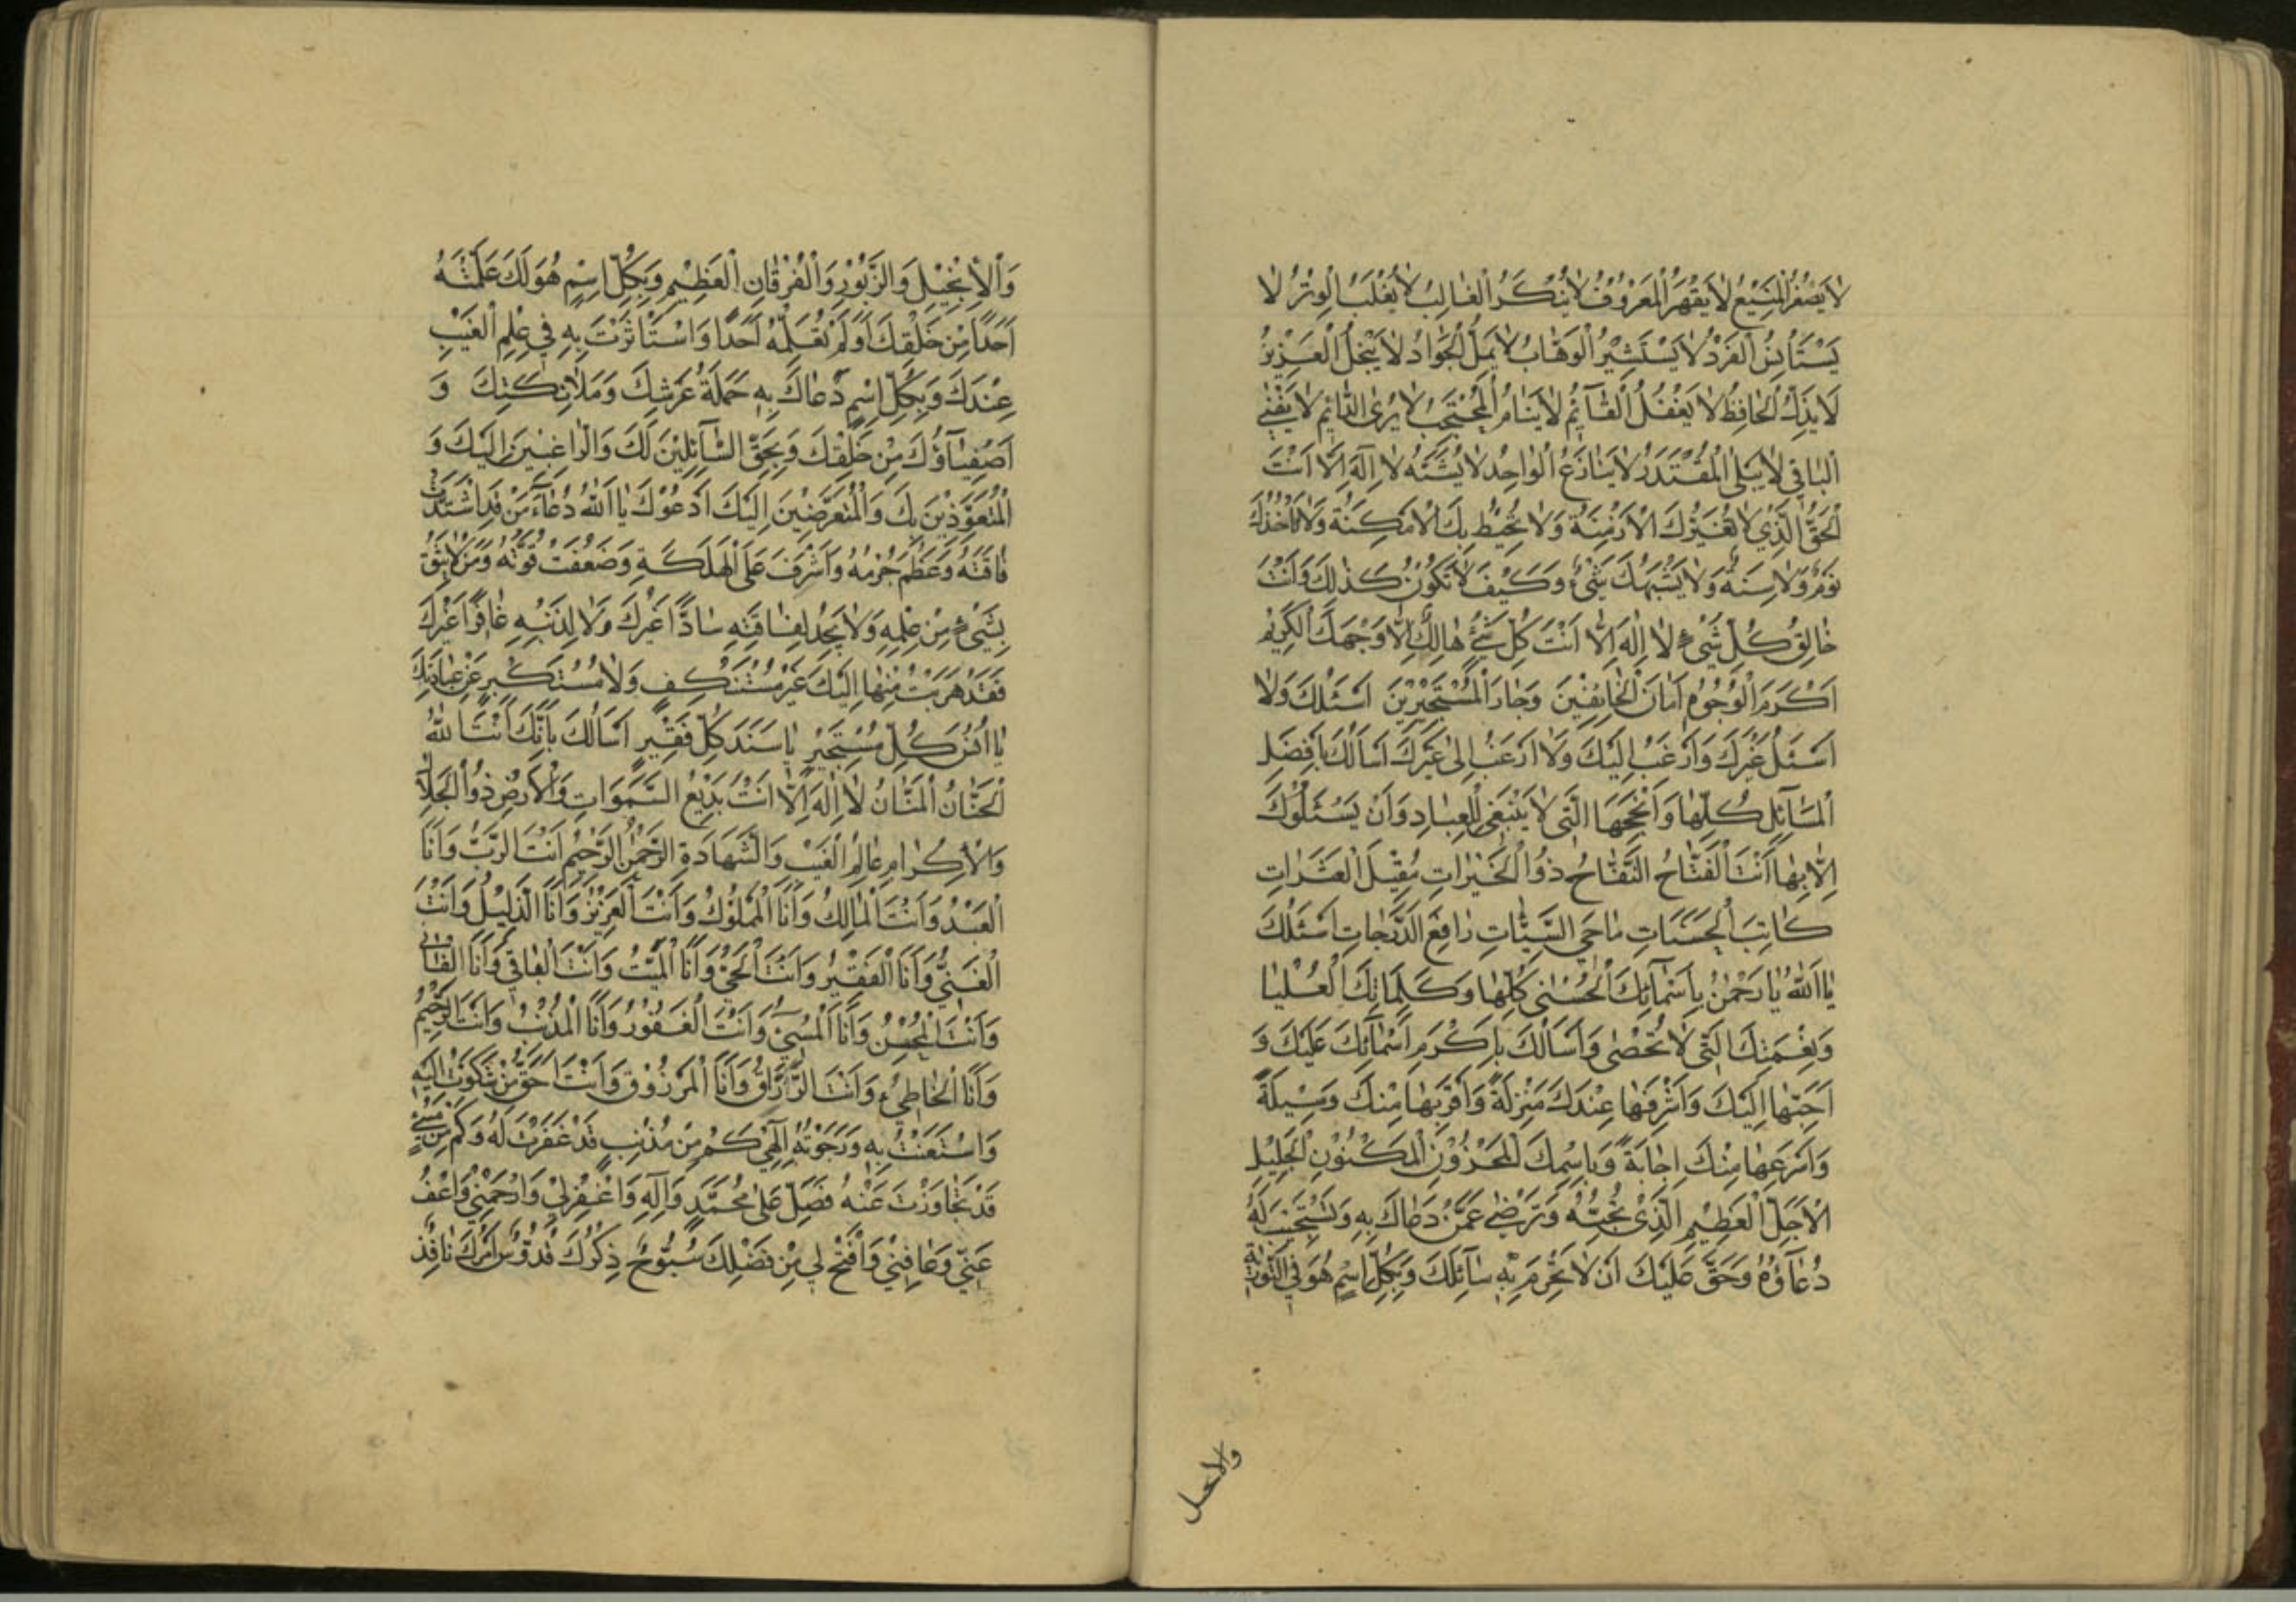 لَا يَصْغُرُ الْمَنِيْعُ لَا يُقْهَرُ الْمَعْرُوْفُ لَا يُنْكَرُ الْغَالِبُ لَا يُغْلَبُ الْوِتْرُ لَا
يَسْتَأْنِسُ الْفَرْدُ لَا يَسْتَشِيْرُ الْوَهَّابُ لَا يَمَلُّ الْجَوَادُ لَا يَبْخَلُ الْعَزِيْزُ
لَا يَذِلُّ الْحَافِظُ لَا يَغْفَلُ الْقَآئِمُ لَا يَنَامُ الْمُحْتَجِبُ لَا يُرٰى الدَّائِمُ لَا يَفْنٰى
الْبَاقِي لَا يَبْلَى الْمُقْتَدِرُ لَا يُنَازَعُ الْوَاحِدُ لَا يُشَبَّهُ لَا اِلٰهَ اِلَّا اَنْتَ
الْحَقُّ الَّذِيْ لَا تُغَيِّرُكَ الْاَزْمِنَةُ وَلَا تُحِيْطُ بِكَ الْاَمْكِنَةُ وَلَا تَأْخُذُكَ
نَوْمٌ وَلَا سِنَةٌ وَلَا يُشْبِهُكَ شَيْءٌ وَكَيْفَ لَا تَكُوْنُ كَذٰلِكَ وَاَنْتَ
خَالِقُ كُلِّ شَيْءٍ لَا اِلٰهَ اِلَّا اَنْتَ كُلُّ شَيْءٍ هَالِكٌ اِلَّا وَجْهَكَ الْكَرِيْمُ
اَكْرَمَ الْوُجُوْهِ اَمَانَ الْخَائِفِيْنَ وَجَارَ الْمُسْتَجِيْرِيْنَ اَسْئَلُكَ وَلَا
اَسْئَلُ غَيْرَكَ وَاَرْغَبُ اِلَيْكَ وَلَا اَرْغَبُ اِلٰى غَيْرِكَ اَسْاَلُكَ بِاَفْضَلِ
الْمَسَآئِلِ كُلِّهَا وَاَنْجَحِهَا الَّتِي لَا يَنْبَغِي لِلْعِبَادِ وَاَنْ يَسْئَلُوْكَ
اِلَّا بِهَا اَنْتَ الْفَتَّاحُ النَّفَّاحُ ذُوا الْخَيْرَاتِ مُقِيْلَ الْعَثَرَاتِ
كَاتِبَ الْحَسَنَاتِ مَاحِيَ السَّيِّئَاتِ رَافِعَ الدَّرَجَاتِ اَسْئَلُكَ
يَا اَللّٰهُ يَا رَحْمٰنُ بِاَسْمَآئِكَ الْحُسْنٰى كُلِّهَا وَكَلِمَاتِكَ الْعُلْيَا
وَنِعْمَتِكَ الَّتِي لَا تُحْصٰى وَاَسْاَلُكَ بِاَكْرَمِ اَسْمَآئِكَ عَلَيْكَ وَ
اَحَبِّهَا اِلَيْكَ وَاَشْرَفِهَا عِنْدَكَ مَنْزِلَةً وَاَقْرَبِهَا مِنْكَ وَسِيْلَةً
وَاَسْرَعِهَا مِنْكَ اِجَابَةً وَبِاِسْمِكَ الْمَخْزُوْنِ الْمَكْنُوْنِ الْجَلِيْلِ
الْاَجَلِّ الْعَظِيْمِ الَّذِيْ تُحِبُّهُ وَتَرْضٰى عَمَّنْ دَعَاكَ بِهِ وَتَسْتَجِيْبَ لَهُ
دُعَآؤُهُ وَحَقٌّ عَلَيْكَ اَنْ لَا تَحْرِمَ بِهِ سَآئِلَكَ وَبِكُلِّ اسْمٍ هُوَ فِي التَّوْرٰىةِ
والانجيل
وَالْاِنْجِيْلِ وَالزَّبُوْرِ وَالْفُرْقَانِ الْعَظِيْمِ وَبِكُلِّ اسْمٍ هُوَ لَكَ عَلَّمْتَهُ
اَحَدًا مِنْ خَلْقِكَ اَوْ لَمْ تُعَلِّمْهُ اَحَدًا وَاسْتَأْثَرْتَ بِهِ فِي عِلْمِ الْغَيْبِ
عِنْدَكَ وَبِكُلِّ اسْمٍ دَعَاكَ بِهِ حَمَلَةُ عَرْشِكَ وَمَلَائِكَتِكَ وَ
اَصْفِيَآؤُكَ مِنْ خَلْقِكَ وَبِحَقِّ السَّآئِلِيْنَ لَكَ وَالرَّاغِبِيْنَ اِلَيْكَ وَ
الْمُتَعَوِّذِيْنَ بِكَ وَالْمُتَعَرِّضِيْنَ اِلَيْكَ اَدْعُوْكَ يَا اَللّٰهُ دُعَآءَ مَنْ قَدِ اشْتَدَّتْ
فَاقَتُهُ وَعَظُمَ جُرْمُهُ وَاَشْرَفَ عَلَى الْهَلَكَةِ وَضَعُفَتْ قُوَّتُهُ وَمَنْ لَا يَثِقُ
بِشَيْءٍ مِنْ عِلْمِهِ وَلَا يَجِدُ لِفَاقَتِهِ سَادًّا غَيْرَكَ وَلَا لِذَنْبِهِ غَافِرًا غَيْرَكَ
فَقَدْ هَرَبْتُ مِنْهَا اِلَيْكَ غَيْرَ مُسْتَنْكِفٍ وَلَا مُسْتَكْبِرٍ عَنْ عِبَادَتِكَ
يَا اُنْسَ كُلِّ مُسْتَجِيْرٍ يَا سَنَدَ كُلِّ فَقِيْرٍ اَسْاَلُكَ بِاَنَّكَ اَنْتَ اللّٰهُ
الْحَنَّانُ الْمَنَّانُ لَا اِلٰهَ اِلَّا اَنْتَ بَدِيْعُ السَّمَوَاتِ وَالْاَرْضِ ذُوا الْجَلَالِ
وَالْاِكْرَامِ عَالِمُ الْغَيْبِ وَالشَّهَادَةِ الرَّحْمٰنُ الرَّحِيْمُ اَنْتَ الرَّبُّ وَاَنَا
الْعَبْدُ وَاَنْتَ الْمَالِكُ وَاَنَا الْمَمْلُوْكُ وَاَنْتَ الْعَزِيْزُ وَاَنَا الذَّلِيْلُ وَاَنْتَ
الْغَنِيُّ وَاَنَا الْفَقِيْرُ وَاَنْتَ الْحَيُّ وَاَنَا الْمَيِّتُ وَاَنْتَ الْبَاقِي وَاَنَا الْفَانِي
وَاَنْتَ الْمُحْسِنُ وَاَنَا الْمُسِيْءُ وَاَنْتَ الْغَفُوْرُ وَاَنَا الْمُذْنِبُ وَاَنْتَ الرَّحِيْمُ
وَاَنَا الْخَاطِيْءُ وَاَنْتَ الرَّزَّاقُ وَاَنَا الْمَرْزُوْقُ وَاَنْتَ اَحَقُّ مَنْ شَكَوْتُ اِلَيْهِ
وَاسْتَعَنْتُ بِهِ وَرَجَوْتُهُ اِلٰهِيْ كَمْ مِنْ مُذْنِبٍ قَدْ غَفَرْتَ لَهُ وَكَمْ مِنْ مُسِيْءٍ
قَدْ تَجَاوَزْتَ عَنْهُ فَصَلِّ عَلٰى مُحَمَّدٍ وَاٰلِهِ وَاغْفِرْ لِيْ وَارْحَمْنِيْ وَاعْفُ
عَنِّيْ وَعَافِنِيْ وَافْتَحْ لِي مِنْ فَضْلِكَ سُبُّوْحٌ ذِكْرُكَ قُدُّوْسٌ اَمْرُكَ نَافِذٌ